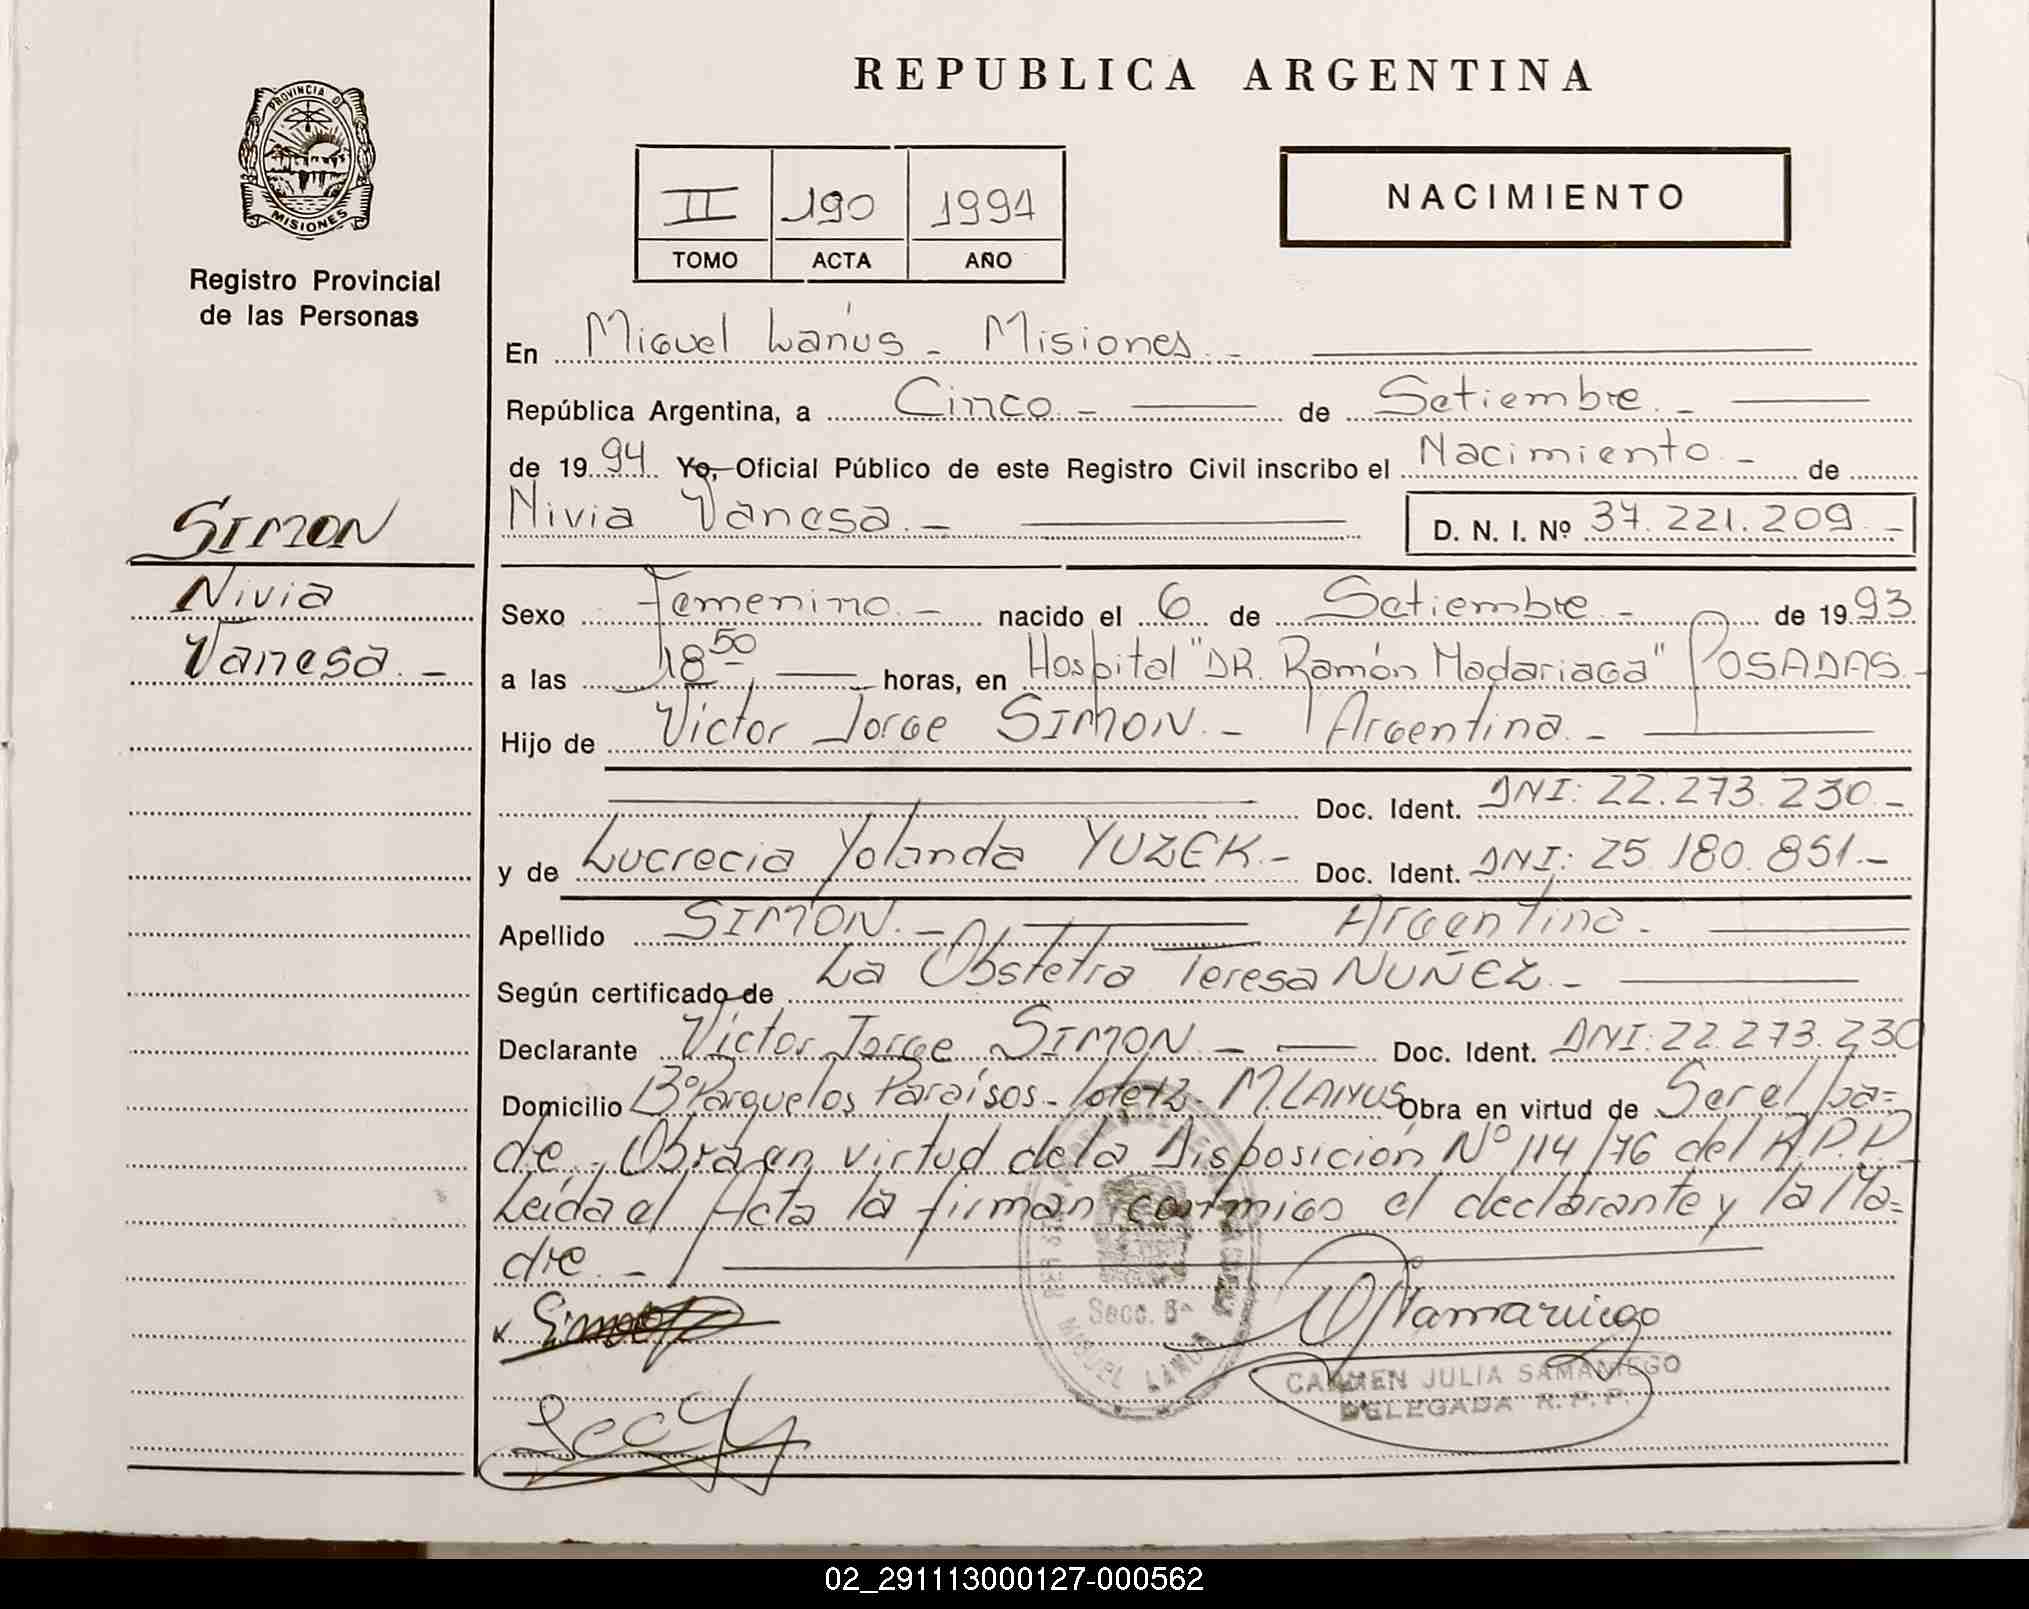 REPUBLICA ARGENTINA
PROVINCIA DE
MISIONES
Registro Provincial
de las Personas
II 190 1994
TOMO ACTA AÑO
NACIMIENTO
En Miguel Lanús - Misiones -
República Argentina, a Cinco - de Setiembre. -
de 1994 Yo, Oficial Público de este Registro Civil inscribo el Nacimiento - de
Nivia Vanesa. - D. N. I. Nº 37.221.209. -
SIMON
Nivia
Vanesa. -
Sexo Femenino. - nacido el 6 de Setiembre - de 1993
a las 18 50 horas, en Hospital "DR. Ramón Madariaga" POSADAS. -
Hijo de Victor Jorge SIMON. - Argentina. -
Doc. Ident. DNI: 22.273.230. -
y de Lucrecia Yolanda YUZEK. - Doc. Ident. DNI: 25.180.851. -
Apellido SIMON. - Argentina. -
Según certificado de La Obstetra Teresa NUÑEZ. -
Declarante Victor Jorge SIMON. - Doc. Ident. DNI: 22.273.230
Domicilio Bº Parque los Paraísos - M. LANUS Obra en virtud de Ser el pa=
dre. - Obra en virtud de la Disposición Nº 114/76 del R.P.P.
Leida el Acta la firman conmigo el declarante y la Ma=
dre. -
Secc. 8ª
MIGUEL LANUS
CARMEN JULIA SAMANIEGO
DELEGADA R.P.P.
02_291113000127-000562